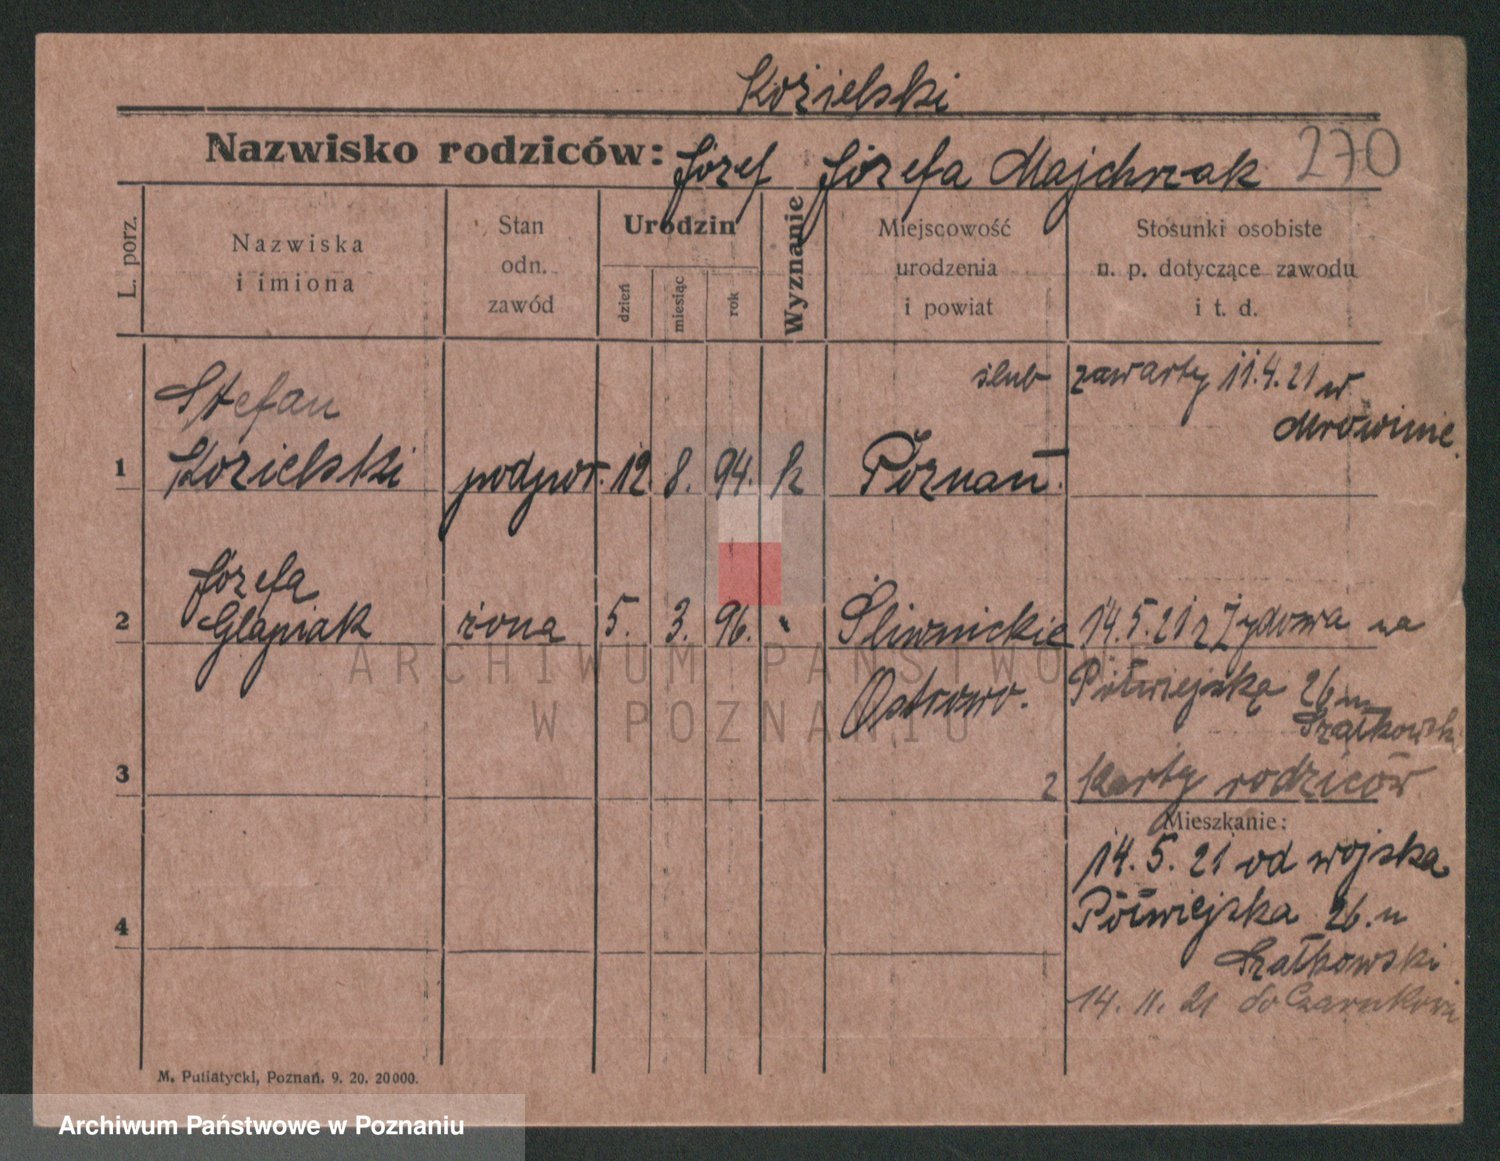 Kozielski
Nazwisko rodziców: Józef Józefa Majchrzak 270
L. porz.
Nazwiska
i imiona
Stan
odn.
zawód
Urodzin
dzień
miesiąc
rok
Wyznanie
Miejscowość
urodzenia
i powiat
Stosunki osobiste
n. p. dotyczące zawodu
i t. d.
ślub zawarty 11.4.21 w
Mrowinie.
Stefan
1 Kozielski podpor. 12. 8. 94. k Poznań.
Józefa
2 Glapiak żona 5. 3. 96. " Śliwnickie 14.5.21 z Żydowa na
Ostrowo. Półwiejską 26 u
Szałkowski
3 z karty rodziców
Mieszkanie:
14. 5. 21 od wojska
Półwiejska 26. u
4
Szałkowski
14. 11. 21 do Czarnkowa
M. Putiatycki, Poznań. 9. 20. 20000.
ARCHIWUM PAŃSTWOWE
W POZNANIU
Archiwum Państwowe w Poznaniu